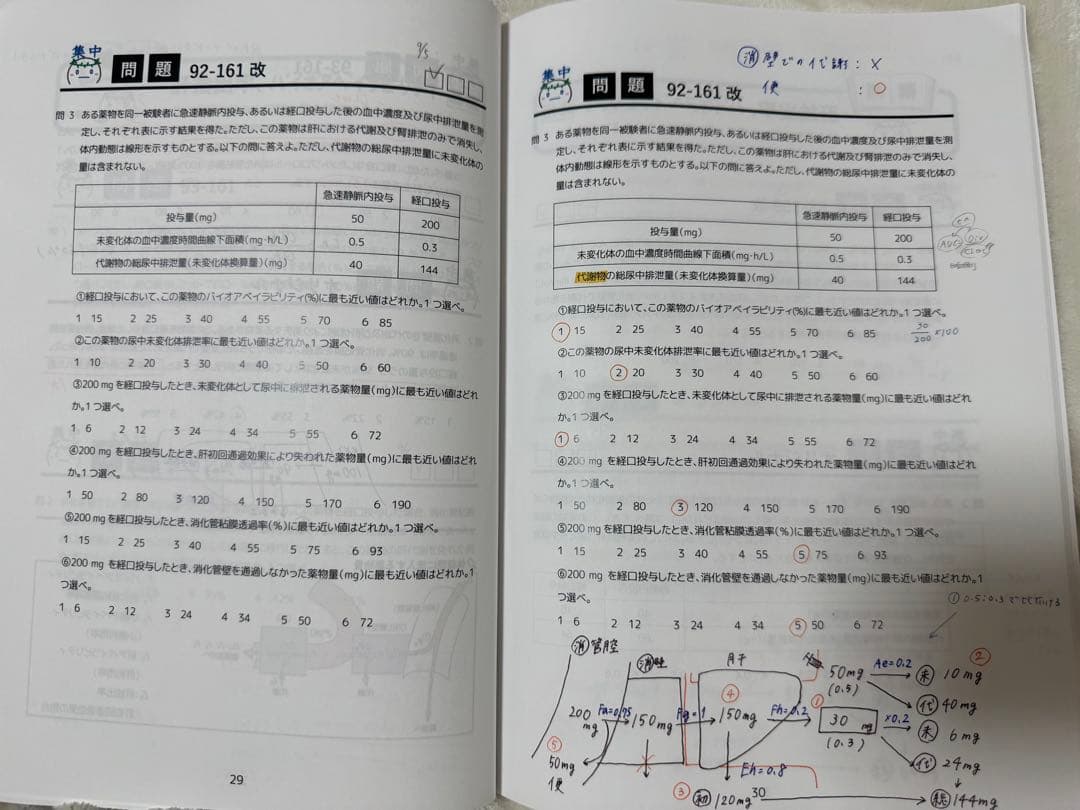 集中
問題 92-161 改
9/5
問 3 ある薬物を同一被験者に急速静脈内投与、あるいは経口投与した後の血中濃度及び尿中排泄量を測
定し、それぞれ表に示す結果を得た。ただし、この薬物は肝における代謝及び腎排泄のみで消失し、
体内動態は線形を示すものとする。以下の問に答えよ。ただし、代謝物の総尿中排泄量に未変化体の
量は含まれない。
急速静脈内投与 経口投与
投与量(mg) 50 200
未変化体の血中濃度時間曲線下面積(mg・h/L) 0.5 0.3
代謝物の総尿中排泄量(未変化体換算量)(mg) 40 144
①経口投与において、この薬物のバイオアベイラビリティ(%)に最も近い値はどれか。1つ選べ。
1 15 2 25 3 40 4 55 5 70 6 85
②この薬物の尿中未変化体排泄率に最も近い値はどれか。1つ選べ。
1 10 2 20 3 30 4 40 5 50 6 60
③200 mg を経口投与したとき、未変化体として尿中に排泄される薬物量(mg)に最も近い値はどれ
か。1つ選べ。
1 6 2 12 3 24 4 34 5 55 6 72
④200 mg を経口投与したとき、肝初回通過効果により失われた薬物量(mg)に最も近い値はどれ
か。1つ選べ。
1 50 2 80 3 120 4 150 5 170 6 190
⑤200 mg を経口投与したとき、消化管粘膜透過率(%)に最も近い値はどれか。1つ選べ。
1 15 2 25 3 40 4 55 5 75 6 93
⑥200 mg を経口投与したとき、消化管壁を通過しなかった薬物量(mg)に最も近い値はどれか。1
つ選べ。
1 6 2 12 3 24 4 34 5 50 6 72
29
集中
問題 92-161 改
消 壁での代謝:×
便 :○
問 3 ある薬物を同一被験者に急速静脈内投与、あるいは経口投与した後の血中濃度及び尿中排泄量を測
定し、それぞれ表に示す結果を得た。ただし、この薬物は肝における代謝及び腎排泄のみで消失し、
体内動態は線形を示すものとする。以下の問に答えよ。ただし、代謝物の総尿中排泄量に未変化体の
量は含まれない。
急速静脈内投与 経口投与
投与量(mg) 50 200
未変化体の血中濃度時間曲線下面積(mg・h/L) 0.5 0.3
代謝物の総尿中排泄量(未変化体換算量)(mg) 40 144
①経口投与において、この薬物のバイオアベイラビリティ(%)に最も近い値はどれか。1つ選べ。
1 15 2 25 3 40 4 55 5 70 6 85
30/200 ×100
②この薬物の尿中未変化体排泄率に最も近い値はどれか。1つ選べ。
1 10 2 20 3 30 4 40 5 50 6 60
③200 mg を経口投与したとき、未変化体として尿中に排泄される薬物量(mg)に最も近い値はどれ
か。1つ選べ。
1 6 2 12 3 24 4 34 5 55 6 72
④200 mg を経口投与したとき、肝初回通過効果により失われた薬物量(mg)に最も近い値はどれ
か。1つ選べ。
1 50 2 80 3 120 4 150 5 170 6 190
⑤200 mg を経口投与したとき、消化管粘膜透過率(%)に最も近い値はどれか。1つ選べ。
1 15 2 25 3 40 4 55 5 75 6 93
⑥200 mg を経口投与したとき、消化管壁を通過しなかった薬物量(mg)に最も近い値はどれか。1
つ選べ。
1 6 2 12 3 24 4 34 5 50 6 72
① 0.5:0.3で
消 管腔
消 壁
肝
50mg Ae=0.2 未 10mg ②
(0.5)
代 40mg
200mg Fa=0.75 150mg Fg=1 ④ 150mg Fh=0.2 ① 30mg ×0.2 未 6mg
(0.3)
代 24mg
⑤ 50mg
便
Eh=0.8
③ 初 120mg 30 総 144mg